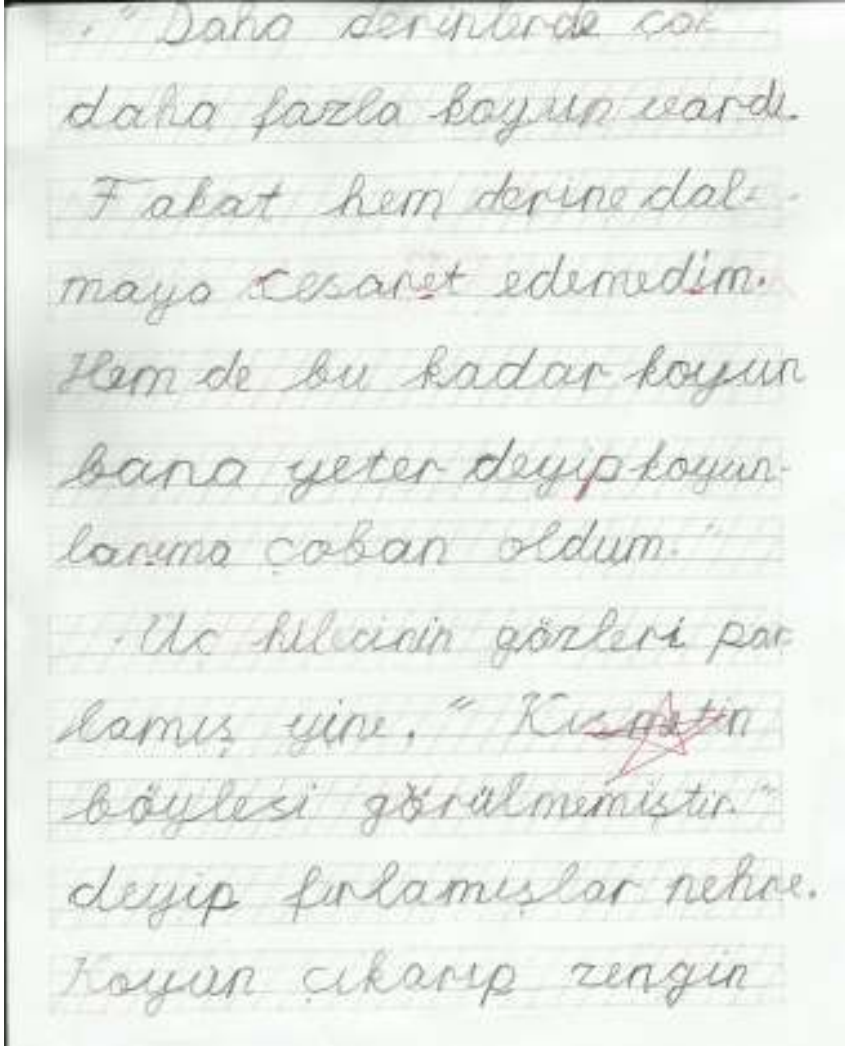 ." Daha derinlerde çok
daha fazla koyun vardı.
Fakat hem derine dal-
maya cesaret edemedim.
Hem de bu kadar koyun
bana yeter deyip koyun-
larıma çoban oldum."
Üç hilecinin gözleri par
lamış yine. "Kısmetin
böylesi görülmemiştir."
deyip fırlamışlar nehre.
Koyun çıkarıp zengin